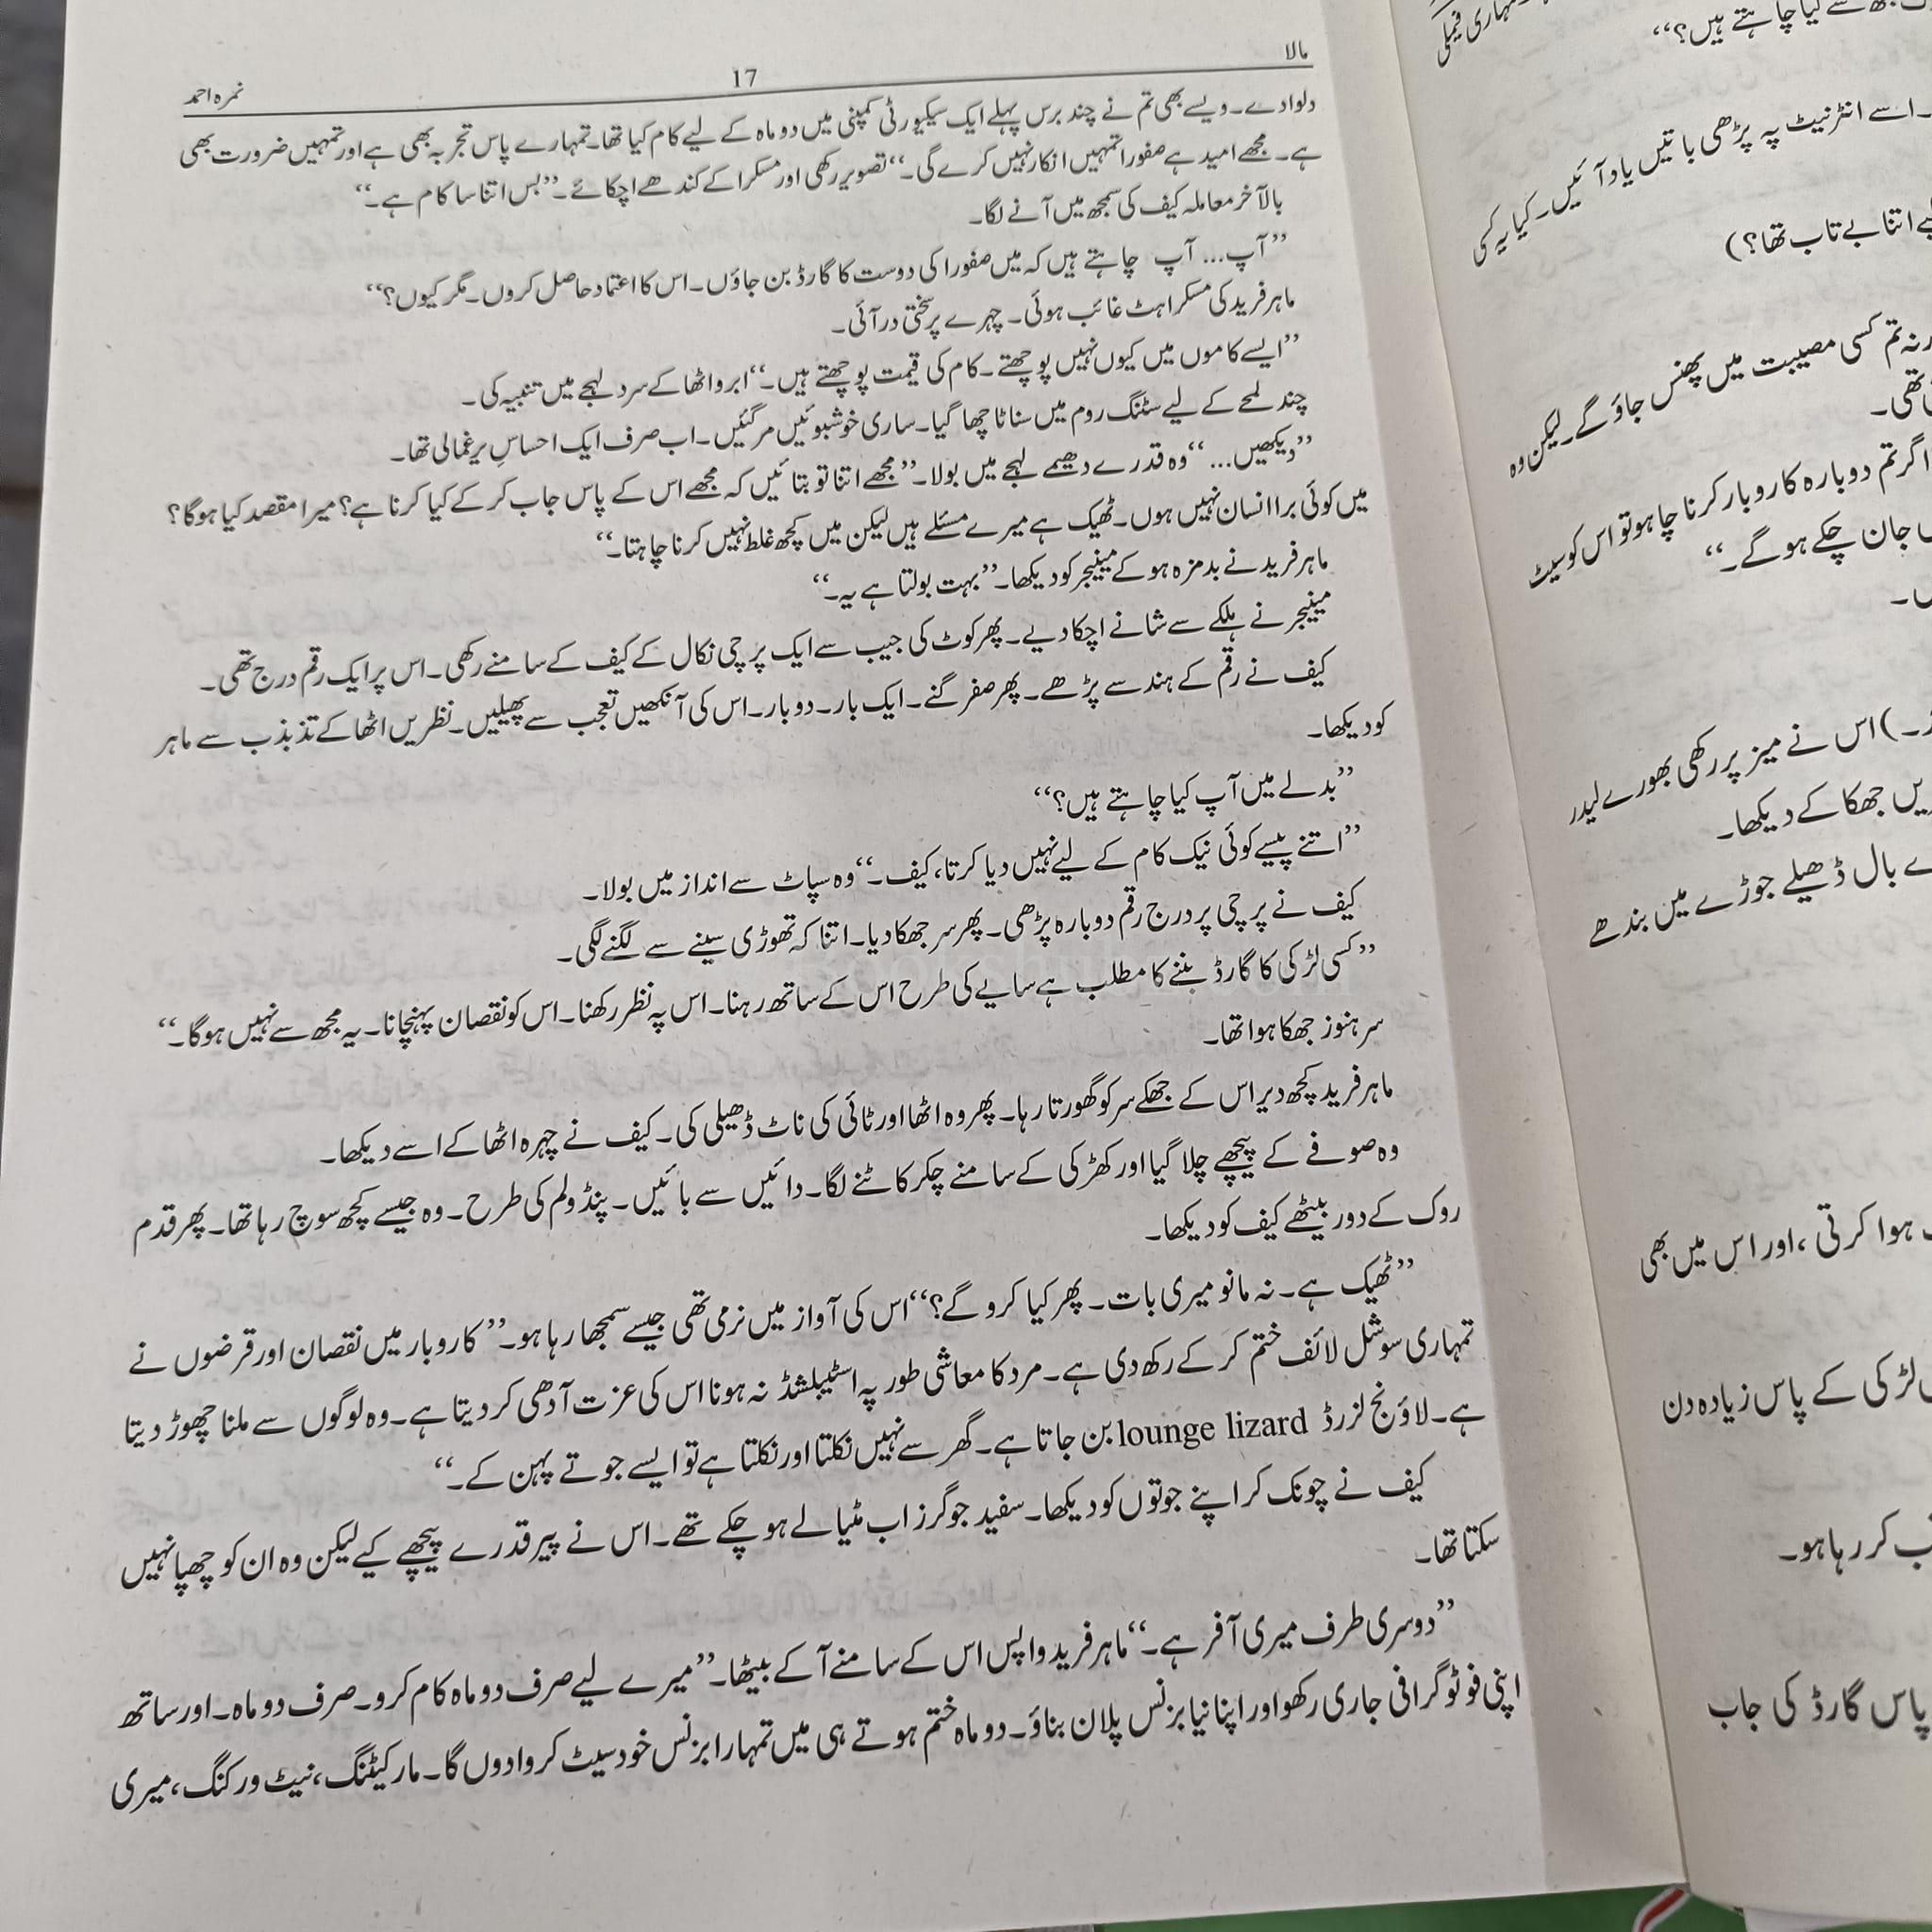 مالا
17
نمرہ احمد
دلوا دے۔ ویسے بھی تم نے چند برس پہلے ایک سیکیورٹی کمپنی میں دو ماہ کے لیے کام کیا تھا۔ تمہارے پاس تجربہ بھی ہے اور تمہیں ضرورت بھی
ہے۔ مجھے امید ہے صفورا تمہیں انکار نہیں کرے گی۔“ تصویر رکھی اور مسکرا کے کندھے اچکائے۔ ”بس اتنا سا کام ہے۔“
بالآخر معاملہ کیف کی سمجھ میں آنے لگا۔
”آپ... آپ چاہتے ہیں کہ میں صفورا کی دوست کا گارڈ بن جاؤں۔ اس کا اعتماد حاصل کروں۔ مگر کیوں؟“
ماہر فرید کی مسکراہٹ غائب ہوئی۔ چہرے پر سختی در آئی۔
”ایسے کاموں میں کیوں نہیں پوچھتے۔ کام کی قیمت پوچھتے ہیں۔“ ابرو اٹھا کے سرد لہجے میں تنبیہ کی۔
چند لمحے کے لیے سٹنگ روم میں سناٹا چھا گیا۔ ساری خوشبوئیں مر گئیں۔ اب صرف ایک احساسِ یرغمالی تھا۔
”دیکھیں...“ وہ قدرے دھیمے لہجے میں بولا۔ ”مجھے اتنا تو بتائیں کہ مجھے اس کے پاس جاب کر کے کیا کرنا ہے؟ میرا مقصد کیا ہوگا؟
میں کوئی برا انسان نہیں ہوں۔ ٹھیک ہے میرے مسئلے ہیں لیکن میں کچھ غلط نہیں کرنا چاہتا۔“
ماہر فرید نے بدمزہ ہو کے مینیجر کو دیکھا۔ ”بہت بولتا ہے یہ۔“
مینیجر نے ہلکے سے شانے اچکا دیے۔ پھر کوٹ کی جیب سے ایک پرچی نکال کے کیف کے سامنے رکھی۔ اس پر ایک رقم درج تھی۔
کیف نے رقم کے ہندسے پڑھے۔ پھر صفر گنے۔ ایک بار۔ دو بار۔ اس کی آنکھیں تعجب سے پھیلیں۔ نظریں اٹھا کے تذبذب سے ماہر
کو دیکھا۔
”بدلے میں آپ کیا چاہتے ہیں؟“
”اتنے پیسے کوئی نیک کام کے لیے نہیں دیا کرتا، کیف۔“ وہ سپاٹ سے انداز میں بولا۔
کیف نے پرچی پر درج رقم دوبارہ پڑھی۔ پھر سر جھکا دیا۔ اتنا کہ تھوڑی سینے سے لگنے لگی۔
”کسی لڑکی کا گارڈ بننے کا مطلب ہے سایے کی طرح اس کے ساتھ رہنا۔ اس پہ نظر رکھنا۔ اس کو نقصان پہنچانا۔ یہ مجھ سے نہیں ہوگا۔“
سر ہنوز جھکا ہوا تھا۔
ماہر فرید کچھ دیر اس کے جھکے سر کو گھورتا رہا۔ پھر وہ اٹھا اور ٹائی کی ناٹ ڈھیلی کی۔ کیف نے چہرہ اٹھا کے اسے دیکھا۔
وہ صوفے کے پیچھے چلا گیا اور کھڑکی کے سامنے چکر کاٹنے لگا۔ دائیں سے بائیں۔ پنڈولم کی طرح۔ وہ جیسے کچھ سوچ رہا تھا۔ پھر قدم
روک کے دور بیٹھے کیف کو دیکھا۔
”ٹھیک ہے۔ نہ مانو میری بات۔ پھر کیا کرو گے؟“ اس کی آواز میں نرمی تھی جیسے سمجھا رہا ہو۔ ”کاروبار میں نقصان اور قرضوں نے
تمہاری سوشل لائف ختم کر کے رکھ دی ہے۔ مرد کا معاشی طور پہ اسٹیبلشڈ نہ ہونا اس کی عزت آدھی کر دیتا ہے۔ وہ لوگوں سے ملنا چھوڑ دیتا
ہے۔ لاؤنج لزرڈ lounge lizard بن جاتا ہے۔ گھر سے نہیں نکلتا اور نکلتا ہے تو ایسے جوتے پہن کے۔“
کیف نے چونک کر اپنے جوتوں کو دیکھا۔ سفید جوگرز اب مٹیالے ہو چکے تھے۔ اس نے پیر قدرے پیچھے کیے لیکن وہ ان کو چھپا نہیں
سکتا تھا۔
”دوسری طرف میری آفر ہے۔“ ماہر فرید واپس اس کے سامنے آ کے بیٹھا۔ ”میرے لیے صرف دو ماہ کام کرو۔ صرف دو ماہ۔ اور ساتھ
اپنی فوٹو گرافی جاری رکھو اور اپنا نیا بزنس پلان بناؤ۔ دو ماہ ختم ہوتے ہی میں تمہارا بزنس خود سیٹ کروا دوں گا۔ مارکیٹنگ، نیٹ ورکنگ، میری
کیا چاہتے ہیں؟“
۔ اسے انٹرنیٹ پہ پڑھی باتیں یاد آئیں۔ کیا یہ کسی
اتنا بے تاب تھا؟)
تم کسی مصیبت میں پھنس جاؤ گے۔ لیکن وہ
تھی۔
اگر تم دوبارہ کاروبار کرنا چاہو تو اس کو سیٹ
جان چکے ہو گے۔“
۔) اس نے میز پر رکھی بھورے لیدر
جھکا کے دیکھا۔
بال ڈھیلے جوڑے میں بندھے
ہوا کرتی، اور اس میں بھی
لڑکی کے پاس زیادہ دن
کر رہا ہو۔
پاس گارڈ کی جاب